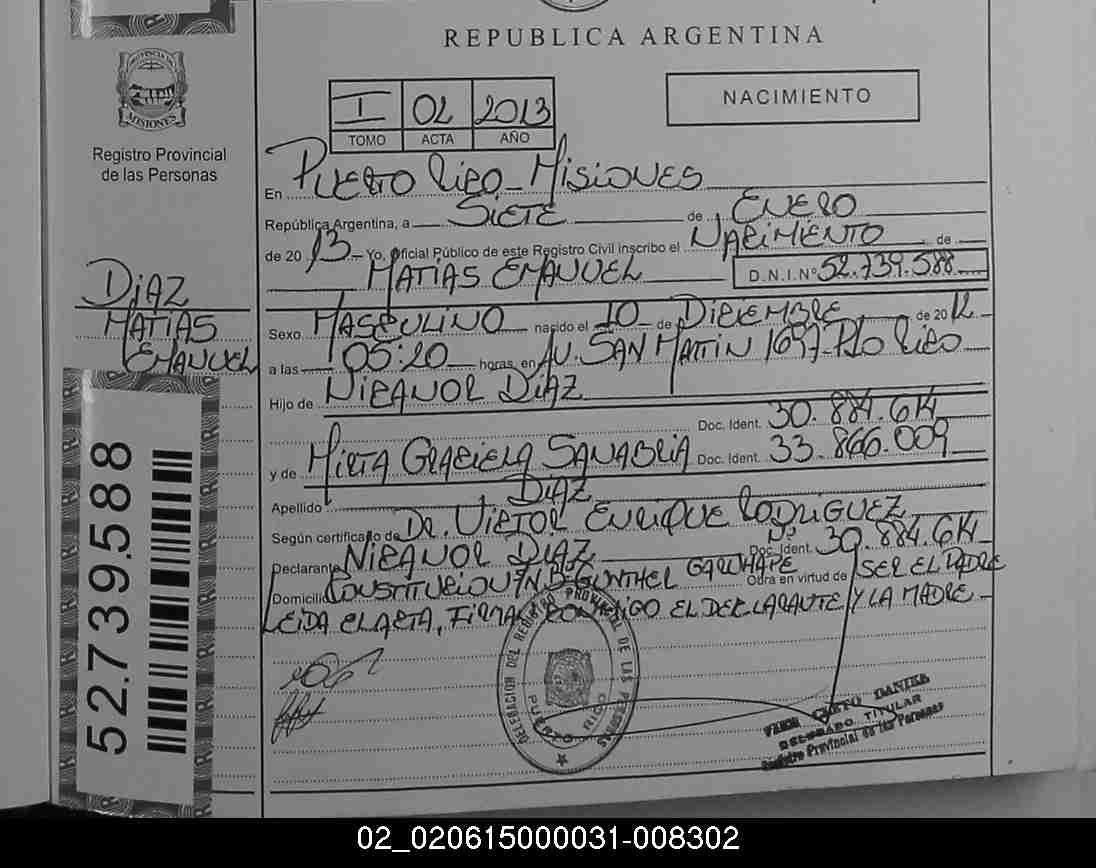 REPUBLICA ARGENTINA
PROVINCIA DE
MISIONES
Registro Provincial
de las Personas
I 02 2013
TOMO ACTA AÑO
NACIMIENTO
En PUERTO RICO - MISIONES
República Argentina, a SIETE de ENERO
de 20 13 Yo, Oficial Público de este Registro Civil inscribo el NACIMIENTO de
MATIAS EMANUEL D.N.I.Nº 52.739.588
DIAZ
MATIAS
EMANUEL
Sexo MASCULINO nacido el 10 de DICIEMBRE de 20 12
a las 05:20 horas, en AV. SAN MARTIN 1657 PTO RICO
Hijo de NICANOR DIAZ
Doc. Ident. 30.884.614
y de MIRTA GRACIELA SANABRIA Doc. Ident. 33.866.009
Apellido DIAZ
Según certificado de DR. VICTOR ENRIQUE RODRIGUEZ
Declarante NICANOR DIAZ Doc. Ident. 30.884.614
Domicilio CONSTITUCION Nº GUNTHER GARUHAPE Obra en virtud de SER EL PADRE
LEIDA EL ACTA, FIRMAN CONMIGO EL DECLARANTE Y LA MADRE -
52.739.588
DELEGACION DEL REGISTRO PROVINCIAL DE LAS PERSONAS
PUERTO RICO
DANIEL
DELEGADO TITULAR
Registro Provincial de las Personas
02_020615000031-008302